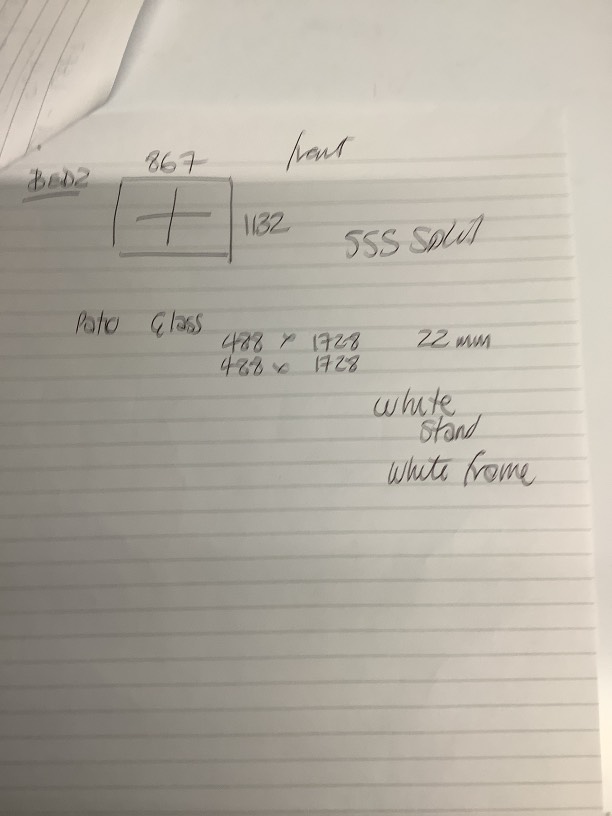 BED2
867
front
1132
555 Split
Patio Glass
488 x 1728 22 mm
488 x 1728
white
stand
white frame